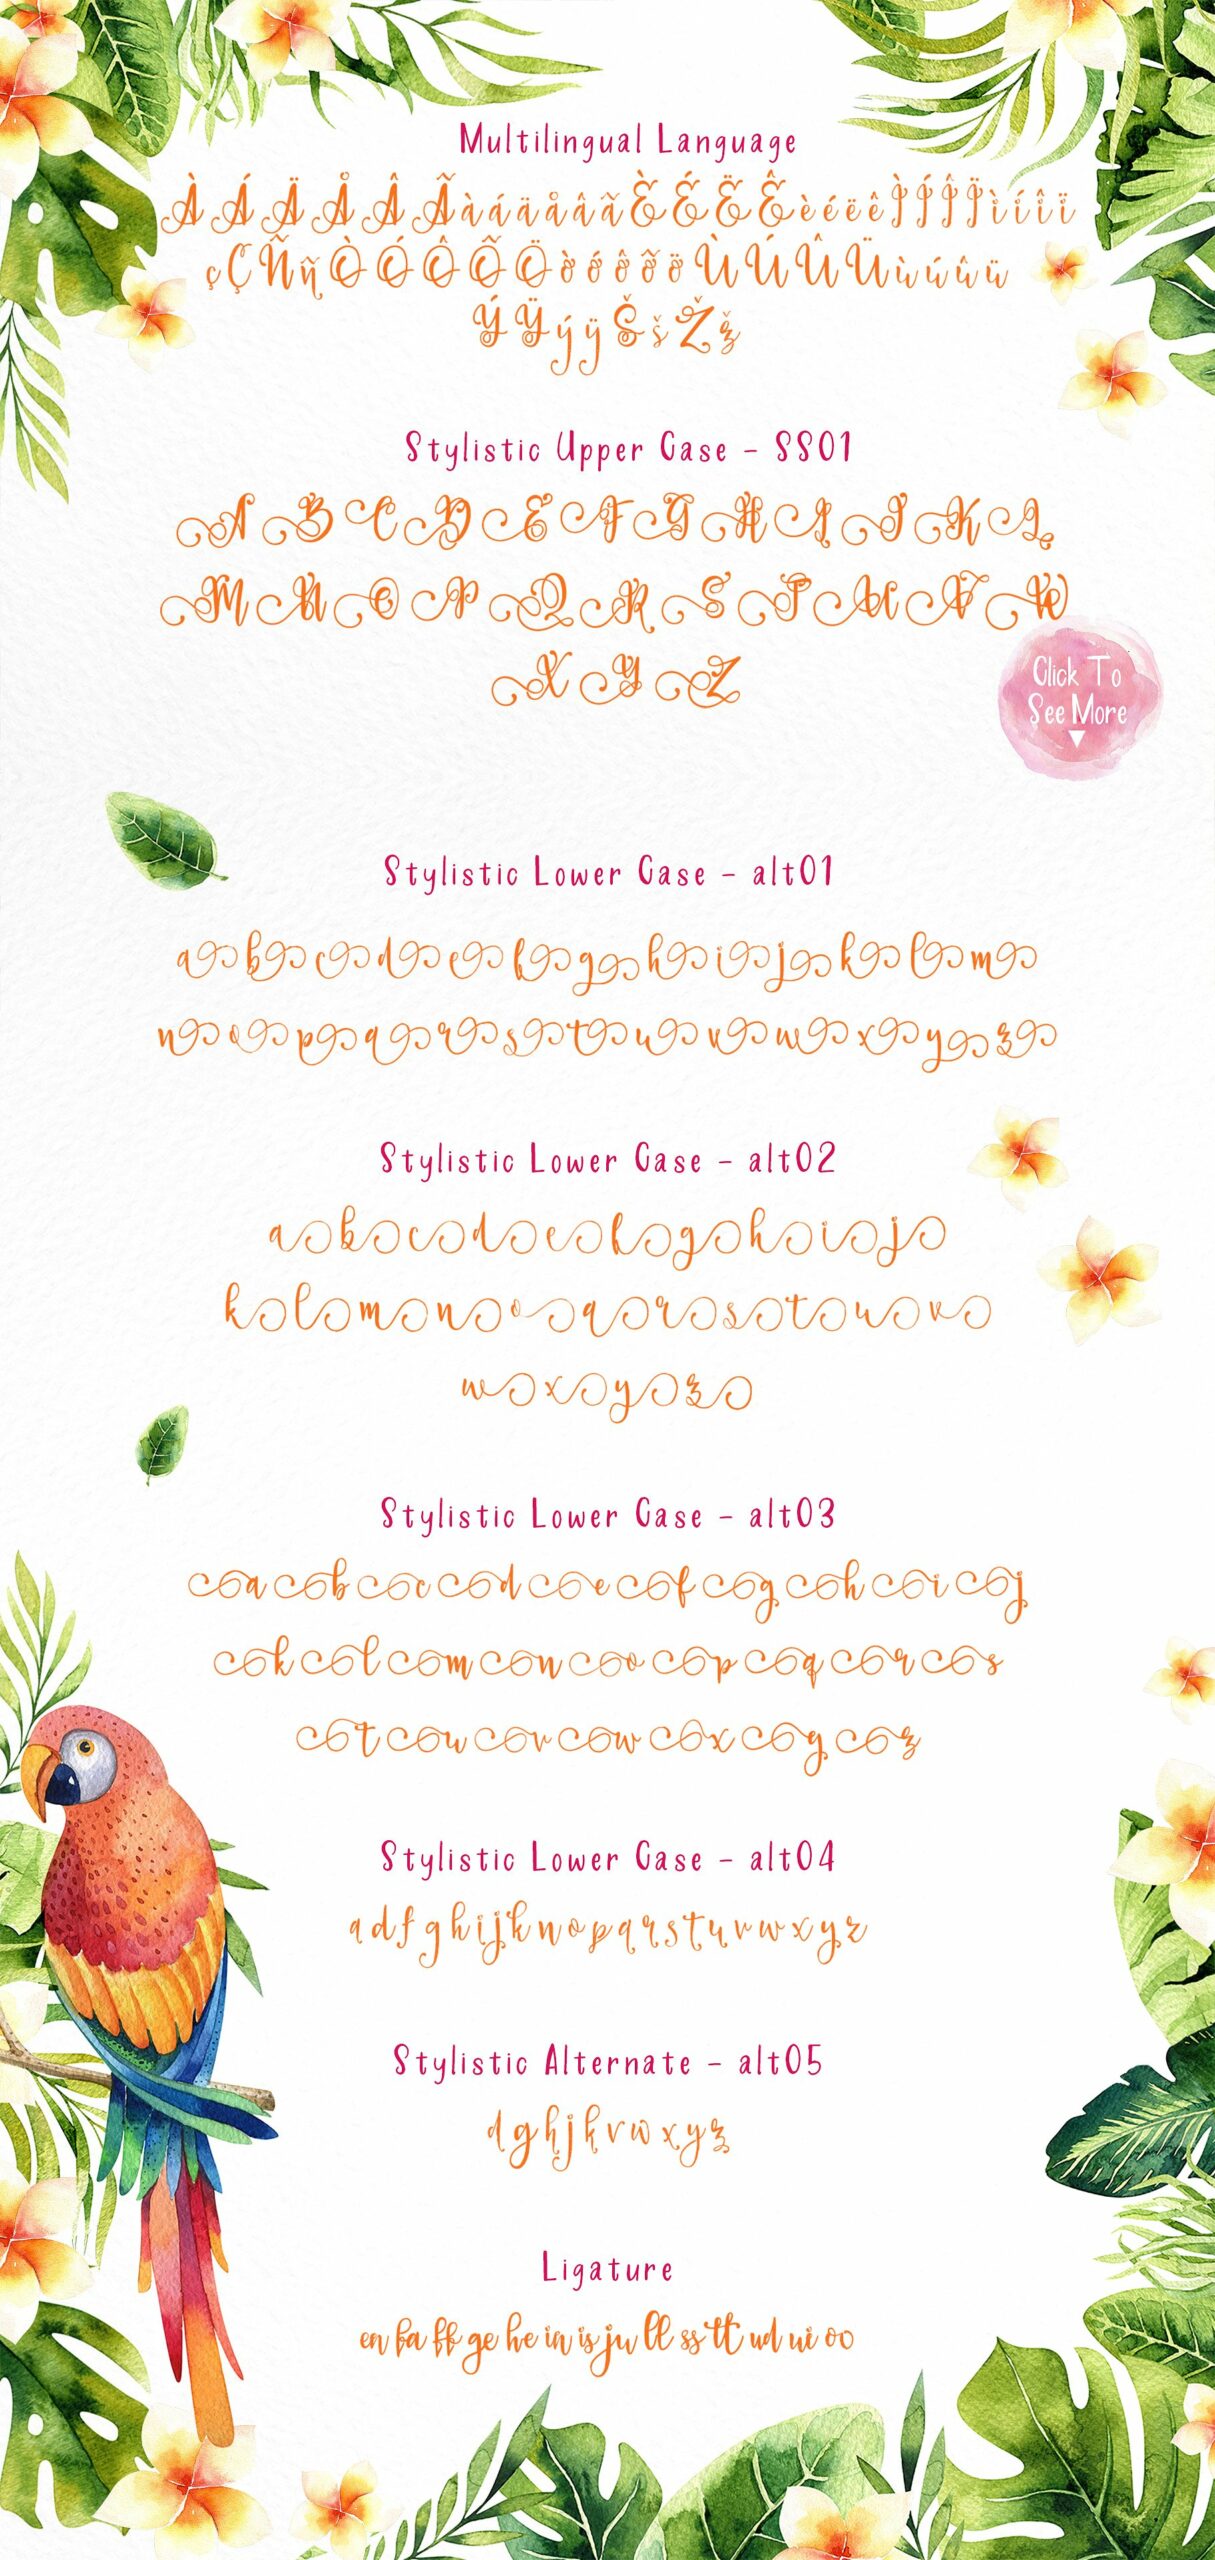 Multilingual Language
À Á Ä Å Â Ã à á ä å â ã È É Ë Ê è é ë ê Ì Í Î Ï ì í î ï
ç Ç Ñ ñ Ò Ó Ô Õ Ö ò ó ô õ ö Ù Ú Û Ü ù ú û ü
Ý Ÿ ý ÿ Š š Ž ž
Stylistic Upper Case - SS01
A B C D E F G H I J K L
M N O P Q R S T U V W
X Y Z
Click To
See More
Stylistic Lower Case - alt01
a b c d e f g h i j k l m
n o p q r s t u v w x y z
Stylistic Lower Case - alt02
a b c d e f g h i j
k l m n o q r s t u v
w x y z
Stylistic Lower Case - alt03
a b c d e f g h i j
k l m n o p q r s
t u v w x y z
Stylistic Lower Case - alt04
a d f g h i j k n o p q r s t u v w x y z
Stylistic Alternate - alt05
d g h j k v w x y z
Ligature
en fa ff ge he in is ju ll ss tt ud ui oo